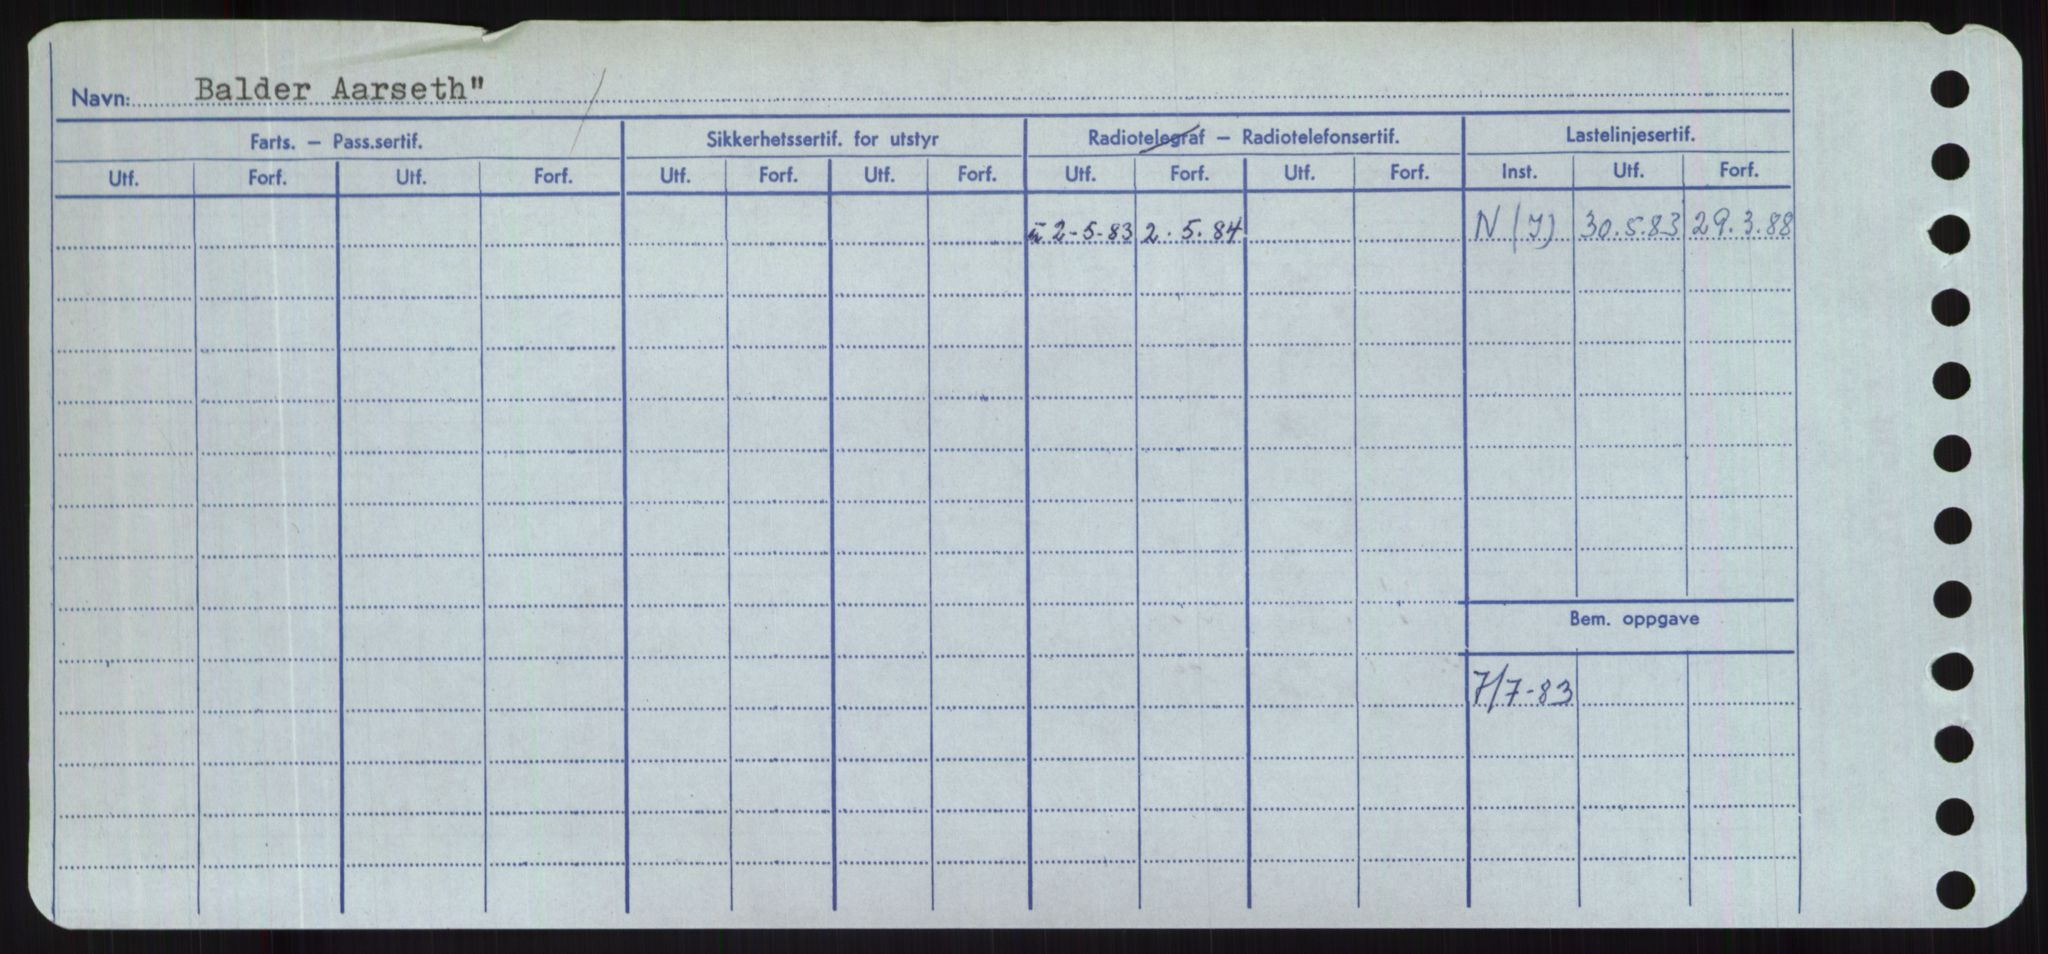 Navn: Balder Aarseth"
Farts. — Pass.sertif. Sikkerhetssertif. for utstyr Radiotelegraf — Radiotelefonsertif. Lastelinjesertif.
Utf. Forf. Utf. Forf. Utf. Forf. Utf. Forf. Utf. Forf. Utf. Forf. Inst. Utf. Forf.
2-5-83 2.5.84 N (I) 30.5.83 29.3.88
Bem. oppgave
7/7-83